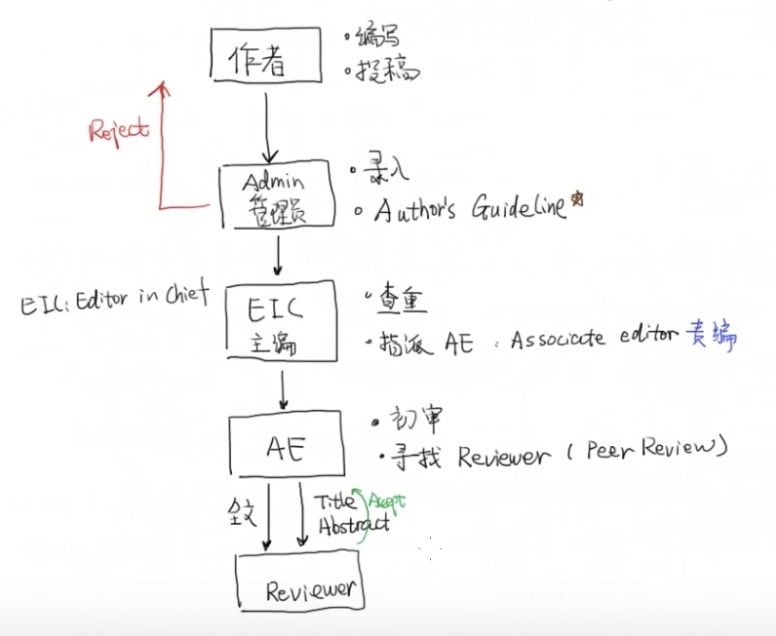 作者
•编写
•投稿
Reject
Admin
管理员
•录入
• Author's Guideline
EIC: Editor in Chief
EIC
主编
•查重
•指派 AE : Associate editor 责编
AE
•初审
•寻找 Reviewer (Peer Review)
全文
Title
Abstract
Accept
Reviewer